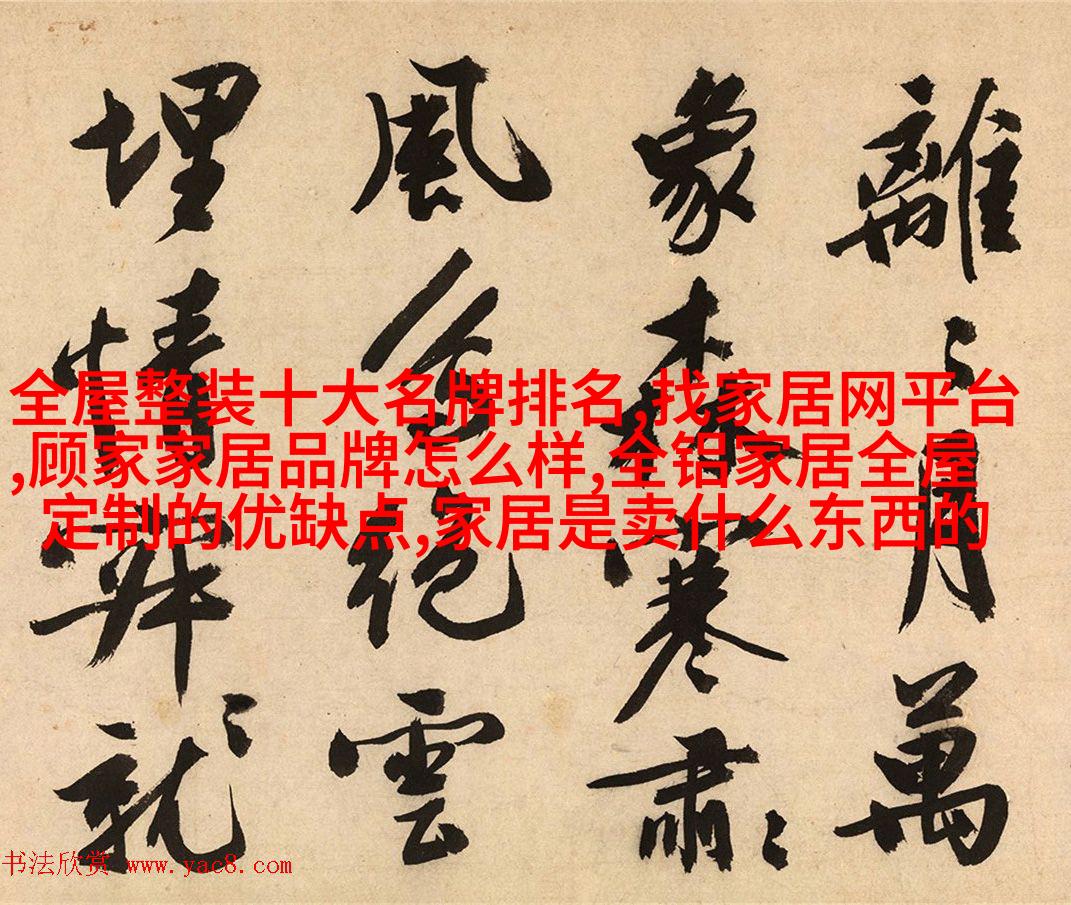 離〻月萬
象森寒肅〻
風絕雲
埋情就〻
全屋整装十大名牌排名,找家居网平台
,顾家家居品牌怎么样,全铝家居全屋
定制的优缺点,家居是卖什么东西的
书法欣赏 www.yac8.com